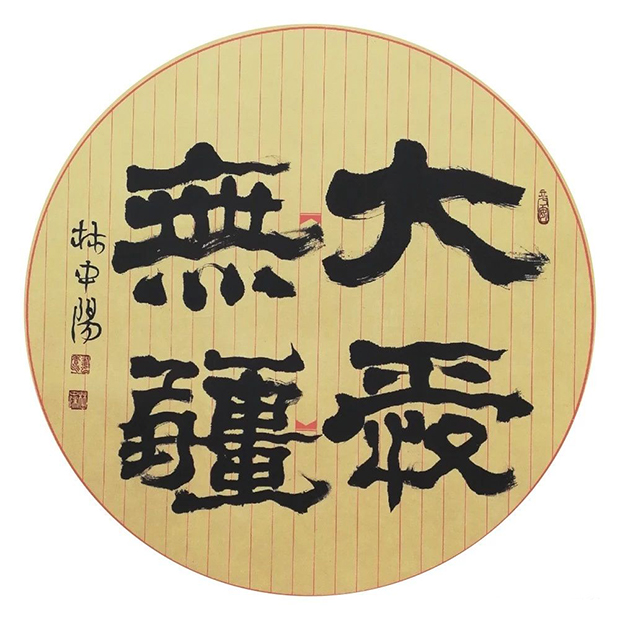 大愛
無疆
林中陽